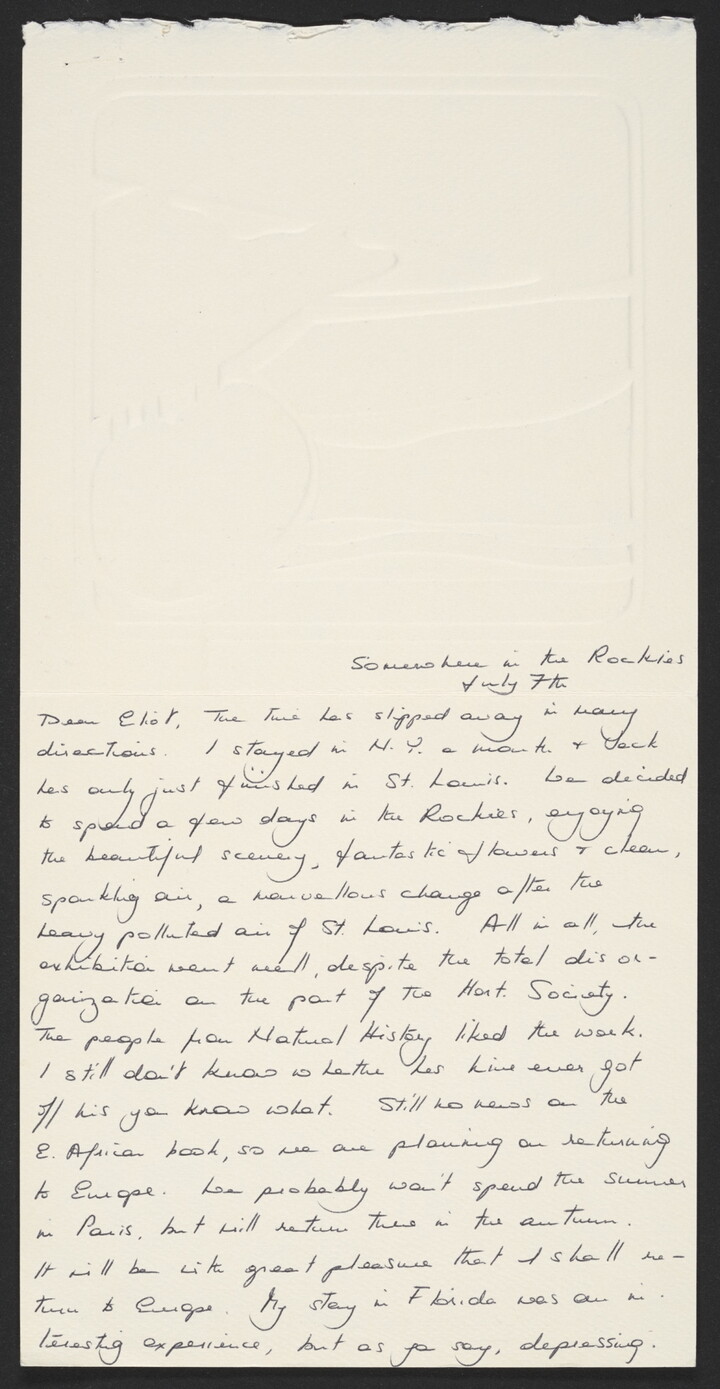 Somewhere in the Rockies
July 7th
Dear Eliot, The time has slipped away in many
directions. I stayed in N.Y. a month & Jack
has only just finished in St. Louis. We decided
to spend a few days in the Rockies, enjoying
the beautiful scenery, fantastic flowers & clean,
sparkling air, a marvellous change after the
heavy polluted air of St. Louis. All in all, the
exhibition went well, despite the total disor-
ganization on the part of the Hort. Society.
The people from Natural History liked the work.
I still don't know whether Les Line ever got
off his you know what. Still no news on the
E. African book, so we are planning on returning
to Europe. We probably won't spend the summer
in Paris, but will return there in the autumn.
It will be with great pleasure that I shall re-
turn to Europe. My stay in Florida was an in-
teresting experience, but as you say, depressing.